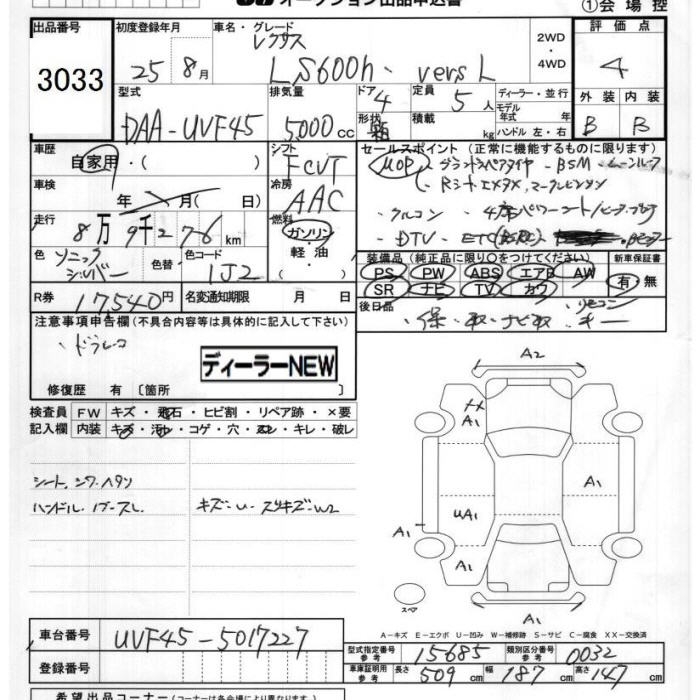 オークション出品申込書
①会場控
出品番号 3033
初度登録年月 25年8月
車名・グレード レクサス LS600h. versL
2WD・4WD
評価点 4
外装 B 内装 B
型式 DAA-UVF45
排気量 5,000cc
ドア 4 形状 箱
定員 5人 積載 kg
ディーラー・並行
モデル年式 年
ハンドル 左・右
車歴 自家用・( )
シフト FCVT
冷房 AAC
車検 年 月(日)
走行 8万9千276km
燃料 ガソリン・軽油・( )
色 ソニックシルバー 色替 色コード 1J2
R券 17,540円
名変通知期限 月 日
セールスポイント (正常に機能するものに限ります)
MOP
BSM
・クルコン
・DTV・ETC
装備品(純正品に限り○をつけてください)
PS PW ABS エアB AW
SR ナビ TV カワ
新車保証書 有・無
後日品 ・保・取・ナビ取・リモコンキー
注意事項申告欄(不具合内容等は具体的に記入して下さい)
・ドラレコ
ディーラーNEW
修復歴 有〔箇所 〕
検査員記入欄
FW キズ・飛石・ヒビ割・リペア跡・×要
内装 キズ・汚レ・コゲ・穴・スレ・キレ・破レ
シート.シワ.ヘタリ
ハンドル.
A2
A1
A1
UA1
A1
A1
A1
スペア
A-キズ E-エクボ U-凹み W-補修跡 S-サビ C-腐食 XX-交換済
車台番号 UVF45-5017227
登録番号
型式指定番号 参考 15685 類別区分番号 参考 0032
車庫証明用 参考 長さ 509cm 幅 187cm 高さ 147cm
希望出品コーナー(各コーナーは会場により異なります)